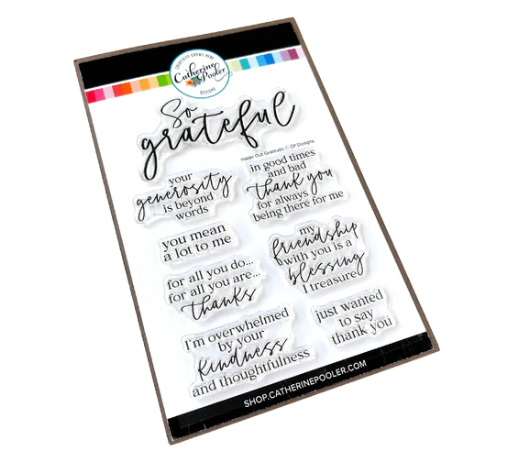 Catherine
Pooler
DESIGNS
So
grateful
Inside Out Gratitude © CP Designs
your
generosity
is beyond
words
in good times
and bad
thank you
for always
being there for me
you mean
a lot to me
my
friendship
with you is a
blessing
I treasure
for all you do...
for all you are...
thanks
I'm overwhelmed
by your
kindness
and thoughtfulness
just wanted
to say
thank you
SHOP.CATHERINEPOOLER.COM